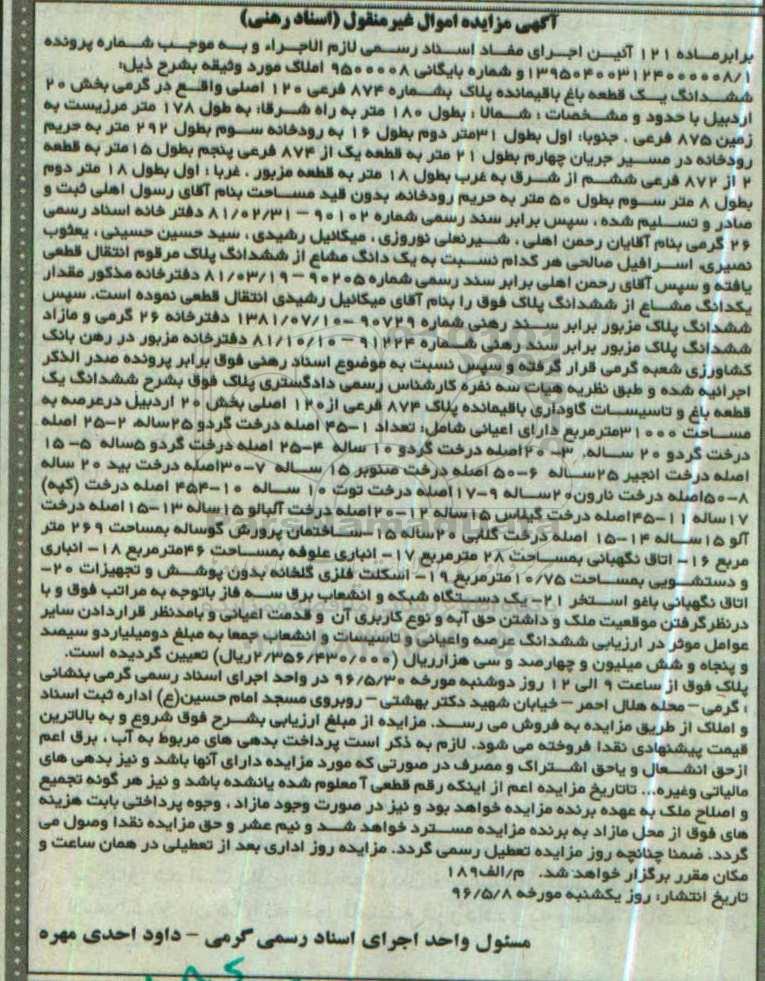 آگهی مزایده اموال غیرمنقول (اسناد رهنی)
برابرماده ۱۲۱ آئین اجرای مفاد اسناد رسمی لازم الاجراء و به موجب شماره پرونده
۱۳۹۵۰۴۰۰۳۱۲۴۰۰۰۰۰۸/۱ و شماره بایگانی ۹۵۰۰۰۰۸ املاک مورد وثیقه بشرح ذیل:
ششدانگ یک قطعه باغ باقیمانده پلاک بشماره ۸۷۴ فرعی ۱۲۰ اصلی واقع در گرمی بخش ۲۰
اردبیل با حدود و مشخصات : شمالا : بطول ۱۸۰ متر به راه شرقا: به طول ۱۷۸ متر مرزیست به
زمین ۸۷۵ فرعی . جنوبا: اول بطول ۳۱متر دوم بطول ۱۶ به رودخانه سوم بطول ۲۹۲ متر به حریم
رودخانه در مسیر جریان چهارم بطول ۲۱ متر به قطعه یک از ۸۷۴ فرعی پنجم بطول ۱۵متر به قطعه
۲ از ۸۷۲ فرعی ششم از شرق به غرب بطول ۱۸ متر به قطعه مزبور . غربا : اول بطول ۱۸ متر دوم
بطول ۸ متر سوم بطول ۵۰ متر به حریم رودخانه. بدون قید مساحت بنام آقای رسول اهلی ثبت و
صادر و تسلیم شده ، سپس برابر سند رسمی شماره ۹۰۱۰۲ – ۸۱/۰۲/۳۱ دفتر خانه اسناد رسمی
۲۶ گرمی بنام آقایان رحمن اهلی ، شیرنعلی نوروزی ، میکائیل رشیدی ، سید حسین حسینی ، یعثوب
نصیری، اسرافیل صالحی هر کدام نسبت به یک دانگ مشاع از ششدانگ پلاک مرقوم انتقال قطعی
یافته و سپس آقای رحمن اهلی برابر سند رسمی شماره ۹۰۲۰۵ – ۸۱/۰۳/۱۹ دفترخانه مذکور مقدار
یکدانگ مشاع از ششدانگ پلاک فوق را بنام آقای میکائیل رشیدی انتقال قطعی نموده است. سپس
ششدانگ پلاک مزبور برابر سند رهنی شماره ۹۰۷۲۹ –۱۳۸۱/۰۷/۱۰ دفترخانه ۲۶ گرمی و مازاد
ششدانگ پلاک مزبور برابر سند رهنی شماره ۹۱۲۲۴ – ۸۱/۱۰/۱۰ دفترخانه مزبور در رهن بانک
کشاورزی شعبه گرمی قرار گرفته و سپس نسبت به موضوع اسناد رهنی فوق برابر پرونده صدر الذکر
اجرائیه شده و طبق نظریه هیات سه نفره کارشناس رسمی دادگستری پلاک فوق بشرح ششدانگ یک
قطعه باغ و تاسیسات گاوداری باقیمانده پلاک ۸۷۴ فرعی از۱۲۰ اصلی بخش ۲۰ اردبیل درعرصه به
مساحت ۳۱۰۰۰مترمربع دارای اعیانی شامل: تعداد ۱–۴۵ اصله درخت گردو ۲۵ساله، ۲–۲۵ اصله
درخت گردو ۲۰ ساله، ۳–۲۰اصله درخت گردو ۱۰ ساله ۴–۲۵ اصله درخت گردو ۵ساله ۵– ۱۵
اصله درخت انجیر ۲۵ساله ۶–۵۰ اصله درخت صنوبر ۱۵ ساله ۷–۳۰اصله درخت بید ۲۰ ساله
۸–۵۰اصله درخت نارون۲۰ساله ۹–۱۷اصله درخت توت ۱۰ ساله ۱۰–۴۵۴ اصله درخت (کپه)
۱۷ساله ۱۱–۴۵اصله درخت گیلاس ۱۵ساله ۱۲–۲۰اصله درخت آلبالو ۱۵ساله ۱۳–۱۵ اصله درخت
آلو ۱۵ساله ۱۴–۱۵ اصله درخت گلابی ۲۰ساله ۱۵–ساختمان پرورش گوساله بمساحت ۲۶۹ متر
مربع ۱۶– اتاق نگهبانی بمساحت ۲۸ مترمربع ۱۷– انباری علوفه بمساحت ۴۶مترمربع ۱۸– انباری
و دستشویی بمساحت ۱۰/۷۵مترمربع ۱۹– اسکلت فلزی گلخانه بدون پوشش و تجهیزات ۲۰–
اتاق نگهبانی باغو استخر ۲۱– یک دستگاه شبکه و انشعاب برق سه فاز باتوجه به مراتب فوق و با
درنظرگرفتن موقعیت ملک و داشتن حق آبه و نوع کاربری آن و قدمت اعیانی و بامدنظر قراردادن سایر
عوامل موثر در ارزیابی ششدانگ عرصه واعیانی و تاسیسات و انشعاب جمعا به مبلغ دومیلیاردو سیصد
و پنجاه و شش میلیون و چهارصد و سی هزارریال (۲/۳۵۶/۴۳۰/۰۰۰ریال) تعیین گردیده است.
پلاک فوق از ساعت ۹ الی ۱۲ روز دوشنبه مورخه ۹۶/۵/۳۰ در واحد اجرای اسناد رسمی گرمی بنشانی
: گرمی – محله هلال احمر – خیابان شهید دکتر بهشتی – روبروی مسجد امام حسین(ع) اداره ثبت اسناد
و املاک از طریق مزایده به فروش می رسد. مزایده از مبلغ ارزیابی بشرح فوق شروع و به بالاترین
قیمت پیشنهادی نقدا فروخته می شود. لازم به ذکر است پرداخت بدهی های مربوط به آب ، برق اعم
ازحق انشعال و یاحق اشتراک و مصرف در صورتی که مورد مزایده دارای آنها باشد و نیز بدهی های
مالیاتی وغیره... تاتاریخ مزایده اعم از اینکه رقم قطعی آ معلوم شده یانشده باشد و نیز هر گونه تجمیع
و اصلاح ملک به عهده برنده مزایده خواهد بود و نیز در صورت وجود مازاد ، وجوه پرداختی بابت هزینه
های فوق از محل مازاد به برنده مزایده مسترد خواهد شد و نیم عشر و حق مزایده نقدا وصول می
گردد. ضمنا چنانچه روز مزایده تعطیل رسمی گردد. مزایده روز اداری بعد از تعطیلی در همان ساعت و
مکان مقرر برگزار خواهد شد. م/الف۱۸۹
تاریخ انتشار: روز یکشنبه مورخه ۹۶/۵/۸
مسئول واحد اجرای اسناد رسمی گرمی – داود احدی مهره